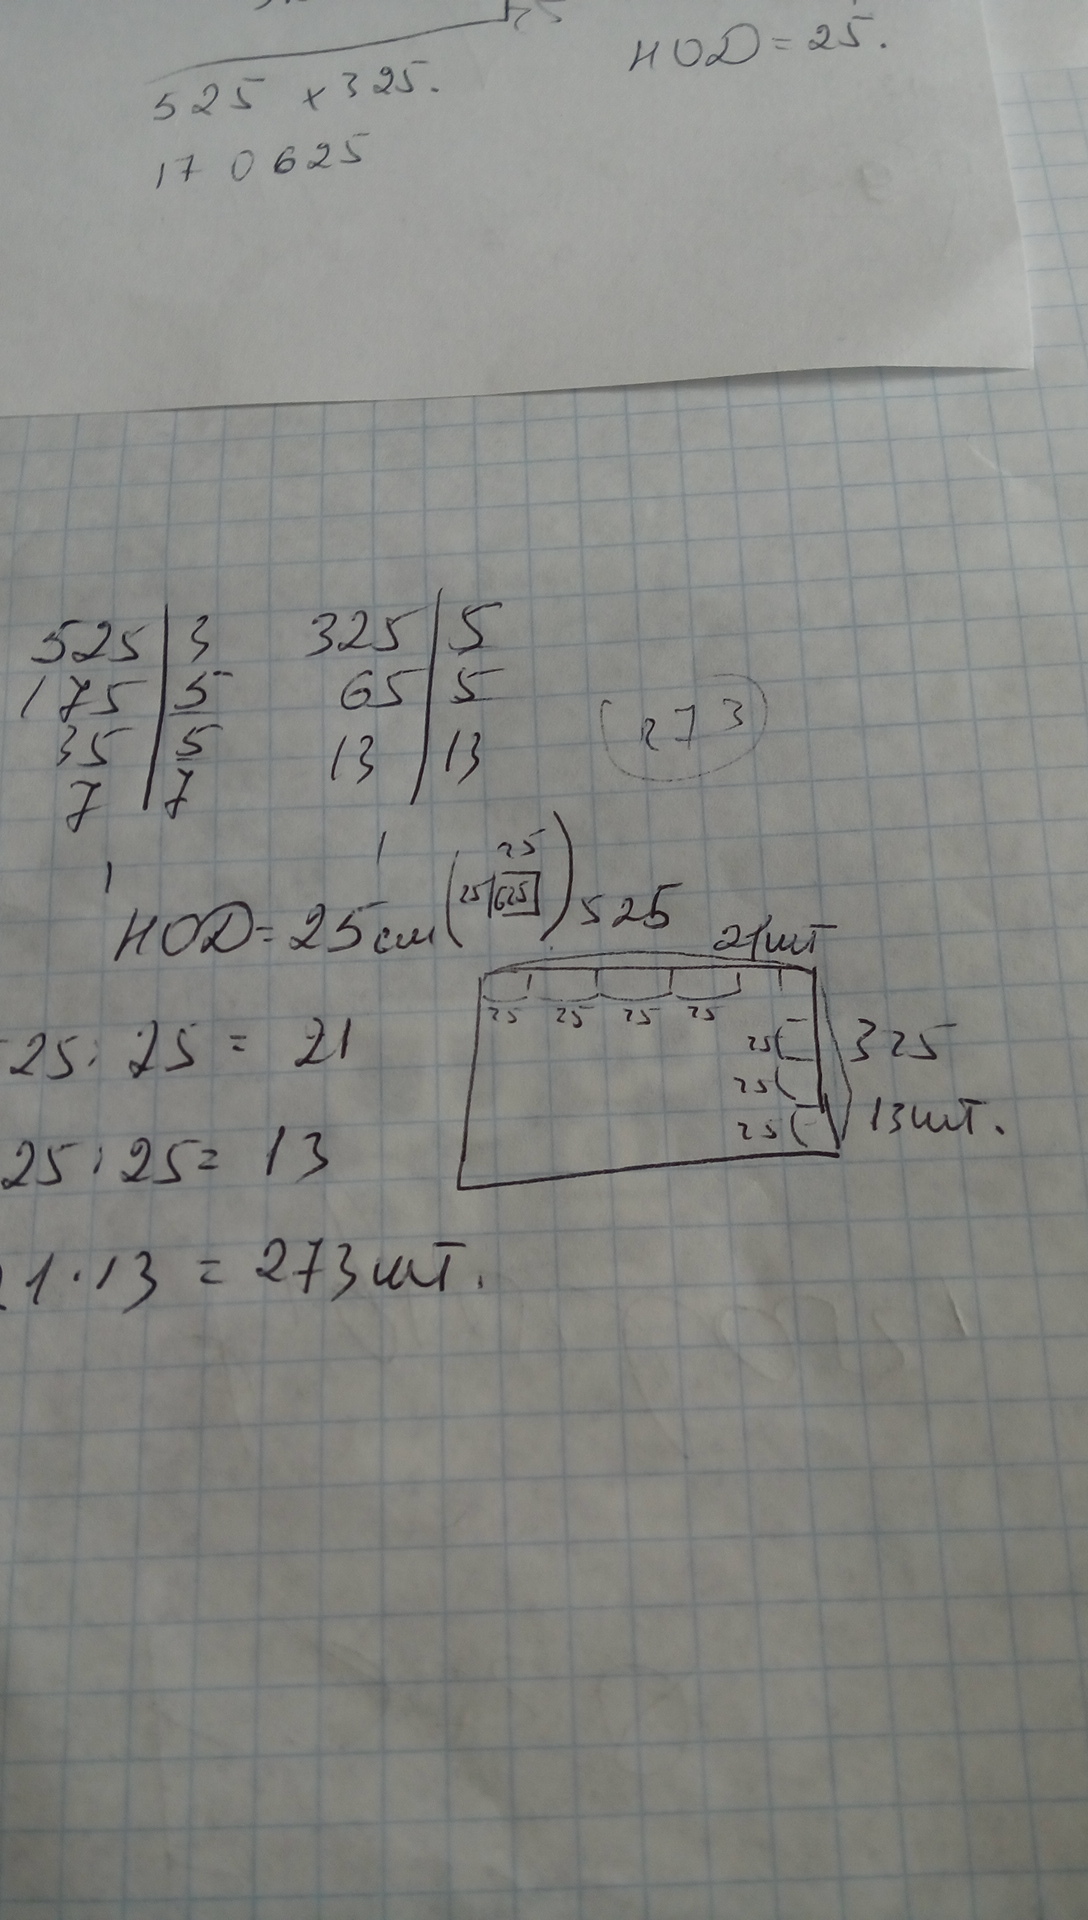 НОД = 25.
525 × 325.
170625
525 | 3
175 | 5
35 | 5
7 | 7
1
325 | 5
65 | 5
13 | 13
1
273
НОД = 25 см ( 25
25 625 )
525
21 шт
25 25 25 25
25
25
25
325
13 шт.
25 : 25 = 21
25 : 25 = 13
1 · 13 = 273 шт.